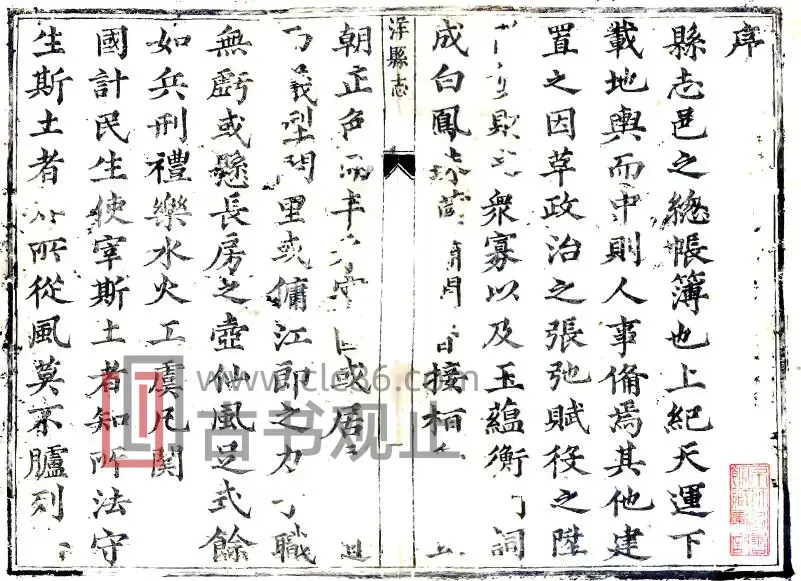 序
縣志邑之總帳簿也上紀天運下
載地輿而中則人事備焉其他建
置之因革政治之張弛賦役之陞
衆寡以及玉蘊衡詞
成白鳳接栢
洋縣志
朝正色或居
義型閭里或傭江郎之力職
無虧或懸長房之壺仙風足式餘
如兵刑禮樂水火工虞凡関
國計民生使宰斯土者知所法守
生斯土者所從風莫不臚列
古书观止